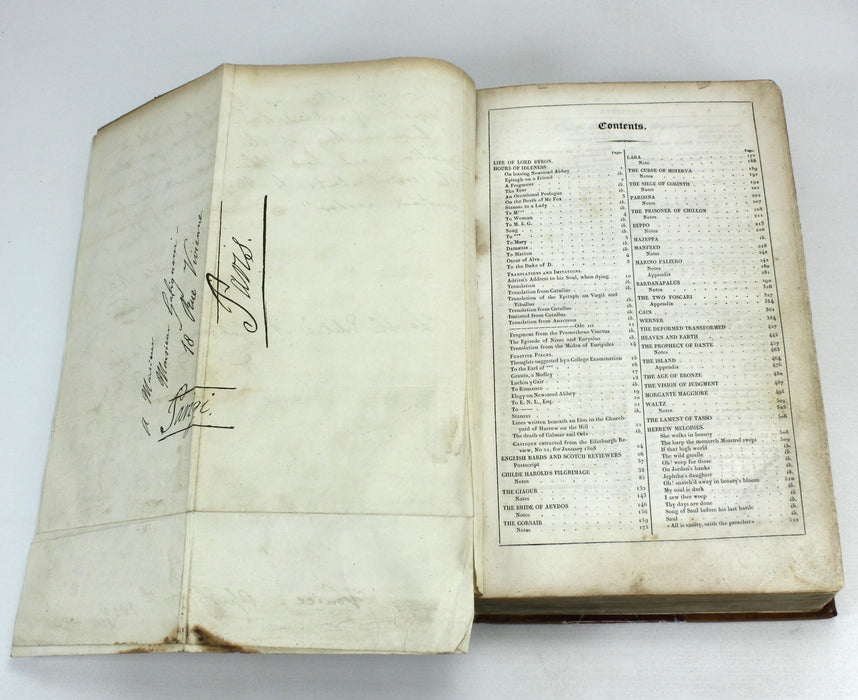 a Monsieur
Monsieur Galignani
18 Rue Vivienne
Parigi.
Paris
Contents.
Page.
LIFE OF LORD BYRON.
HOURS OF IDLENESS. 1
On leaving Newstead Abbey ib.
Epitaph on a Friend ib.
A Fragment ib.
The Tear ib.
An Occasional Prologue 3
On the Death of Mr Fox ib.
Stanzas to a Lady ib.
To M*** 4
To Woman ib.
To M. S. G. ib.
Song ib.
To *** ib.
To Mary ib.
Damætas ib.
To Marion 6
Oscar of Alva
To the Duke of D. 8
TRANSLATIONS AND IMITATIONS.
Adrian's Address to his Soul, when dying 10
Translation ib.
Translation from Catullus ib.
Translation of the Epitaph on Virgil and
Tibullus ib.
Translation from Catullus ib.
Imitated from Catullus ib.
Translation from Anacreon ib.
Ode III 11
Fragment from the Prometheus Vinctus ib.
The Episode of Nisus and Euryalus ib.
Translation from the Medea of Euripides 14
FUGITIVE PIECES.
Thoughts suggested by a College Examination 15
To the Earl of *** 16
Granta, a Medley 17
Lachin y Gair 18
To Romance ib.
Elegy on Newstead Abbey 19
To E. N. L., Esq. 20
To —— 21
Stanzas ib.
Lines written beneath an Elm in the Church-
yard of Harrow on the Hill 22
The death of Calmar and Orla ib.
CRITIQUE extracted from the Edinburgh Re-
view, No 22, for January 1808 24
ENGLISH BARDS AND SCOTCH REVIEWERS 26
Postscript 37
CHILDE HAROLD'S PILGRIMAGE 38
Notes 85
THE GIAOUR 132
Notes 143
THE BRIDE OF ABYDOS 146
Notes 156
THE CORSAIR 159
Notes 175
Page.
LARA 177
Note 188
THE CURSE OF MINERVA 189
Notes 191
THE SIEGE OF CORINTH 192
Notes 201
PARISINA 202
Notes 207
THE PRISONER OF CHILLON 208
Notes 212
BEPPO 213
Notes 220
MAZEPPA ib.
MANFRED 228
Notes 241
MARINO FALIERO 242
Notes
Appendix 282
SARDANAPALUS 290
Notes 326
THE TWO FOSCARI 327
Appendix 354
CAIN 362
WERNER 384
THE DEFORMED TRANSFORMED 427
HEAVEN AND EARTH 445
THE PROPHECY OF DANTE 457
Notes 463
THE ISLAND 464
Appendix 476
THE AGE OF BRONZE 480
THE VISION OF JUDGMENT 487
MORGANTE MAGGIORE 495
WALTZ 502
Notes 505
THE LAMENT OF TASSO 506
HEBREW MELODIES. 508
She walks in beauty 508
The harp the monarch Minstrel swept 509
If that high world ib.
The wild gazelle ib.
Oh! weep for those ib.
On Jordan's banks ib.
Jephtha's daughter ib.
Oh! snatch'd away in beauty's bloom 510
My soul is dark ib.
I saw thee weep ib.
Thy days are done ib.
Song of Saul before his last battle ib.
Saul ib.
«All is vanity, saith the preacher» 511